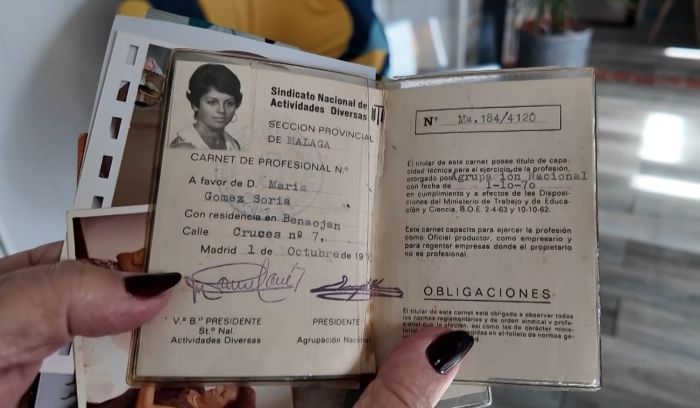 Sindicato Nacional de
Actividades Diversas
SECCION PROVINCIAL
DE MALAGA
CARNET DE PROFESIONAL N.º
A favor de D. Maria
Gomez Soria
Con residencia en Benaojan
Calle Cruces nº 7,
Madrid 1 de Octubre de 19
V.º B.º PRESIDENTE
St.º Nal.
Actividades Diversas
PRESIDENTE
Agrupación Nacional
Nº Ma.184/4120
El titular de este carnet posee título de capa-
cidad técnica para el ejercicio de la profesión,
otorgado por Agrupa ion Nacional
con fecha de 1-1o-7o
en cumplimiento y a efectos de las Disposicio-
del Ministerio de Trabajo y de Educa-
ción y Ciencia, B.O.E. 2-4-63 y 10-10-62.
Este carnet capacita para ejercer la profesión
como Oficial productor, como empresario y
para regentar empresas donde el propietario
no es profesional.
OBLIGACIONES
El titular de este carnet está obligado a observar todas
las normas reglamentarias y de orden sindical y profe-
sional que le afecten, así como las de carácter minis-
terial
en el folleto de normas ge-